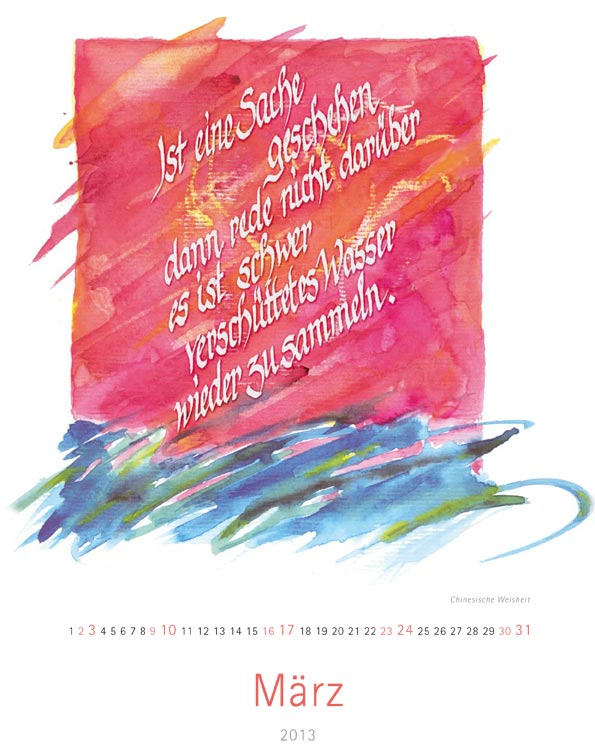 Ist eine Sache
geschehen,
dann rede nicht darüber
es ist schwer
verschüttetes Wasser
wieder zu sammeln.
Chinesische Weisheit
1 2 3 4 5 6 7 8 9 10 11 12 13 14 15 16 17 18 19 20 21 22 23 24 25 26 27 28 29 30 31
März
2013